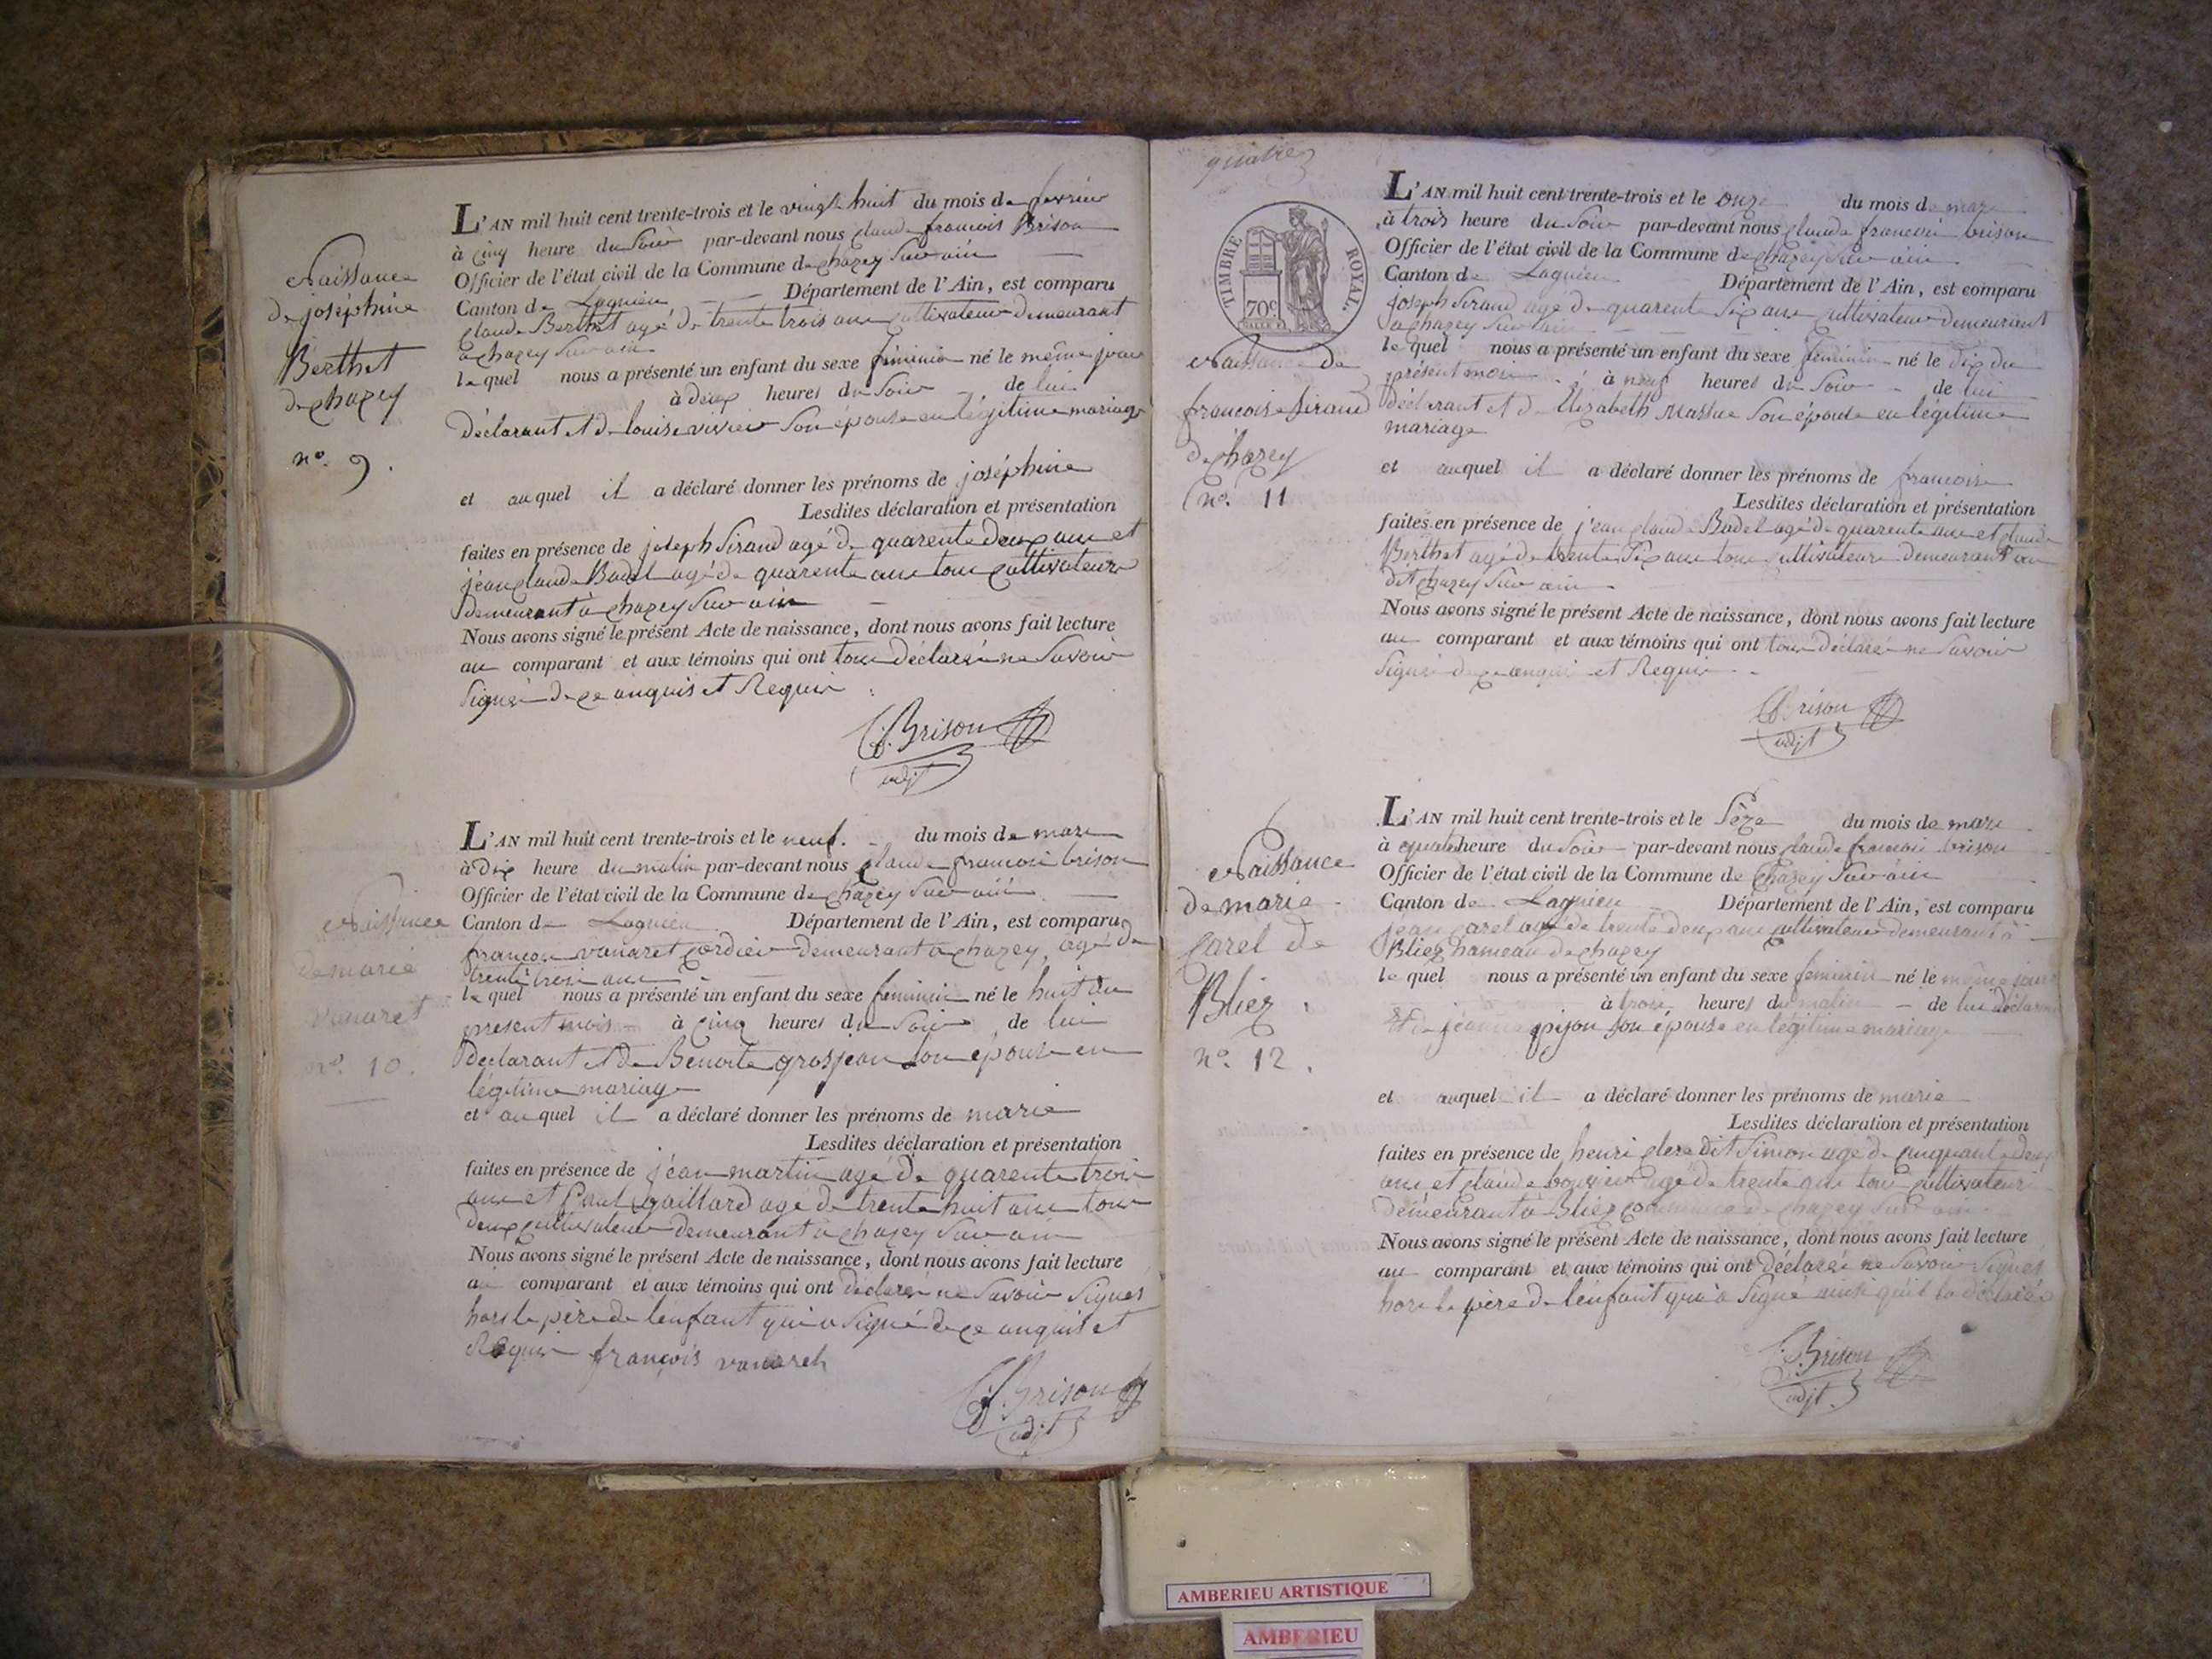 Naissance
de joséphine
Berthet
de chazey
n°. 9.
L'AN mil huit cent trente-trois et le vingt huit du mois de fevrier
à cinq heure du Soir par-devant nous claude francois Brison
Officier de l'état civil de la Commune de chazey Sur ain
Canton de Lagnieu Département de l'Ain, est comparu
claude Berthet agé de trente trois ans cultivateur demeurant
a chazey Sur ain
le quel nous a présenté un enfant du sexe féminin né le même jour
à deux heures du Soir de lui
déclarant et de louise vivier Son épouse en légitime mariage
et au quel il a déclaré donner les prénoms de joséphine
Lesdites déclaration et présentation
faites en présence de joseph Sirand agé de quarente deux ans et
jean claude Badel agé de quarente ans tous cultivateurs
demeurant à chazey Sur ain
Nous avons signé le présent Acte de naissance, dont nous avons fait lecture
au comparant et aux témoins qui ont tous déclaré ne Savoir
Signer de ce enquis et Requis
C.f. Brison
adjt
Naissance
de marie
vanaret
n°. 10.
L'AN mil huit cent trente-trois et le neuf. du mois de mars
à dix heure du matin par-devant nous claude francois brison
Officier de l'état civil de la Commune de chazey Sur ain
Canton de Lagnieu Département de l'Ain, est comparu
francois vanaret cordier demeurant a chazey, agé de
trente trois ans
le quel nous a présenté un enfant du sexe féminin né le huit du
present mois à cinq heures du Soir de lui
déclarant et de Benoite grosjean Son épouse en
légitime mariage
et au quel il a déclaré donner les prénoms de marie
Lesdites déclaration et présentation
faites en présence de jéan martin agé de quarente trois
ans et Gaillard agé de trente huit ans tous
deux cultivateurs demeurant à chazey Sur ain
Nous avons signé le présent Acte de naissance, dont nous avons fait lecture
au comparant et aux témoins qui ont déclaré ne Savoir Signer
hors le père de lenfant qui a Signé de ce enquis et
Requis françois vanareh
C.f. Brison
adjt
quatre
TIMBRE ROYAL.
70c
Naissance de
francoise Sirand
de chazey
n°. 11
L'AN mil huit cent trente-trois et le onze du mois de mars
à trois heure du Soir par-devant nous claude francois brison
Officier de l'état civil de la Commune de chazey Sur ain
Canton de Lagnieu Département de l'Ain, est comparu
joseph Sirand agé de quarente Six ans cultivateur demeurant
a chazey Sur ain
le quel nous a présenté un enfant du sexe féminin né le dix du
présent mois à neuf heures du Soir de lui
déclarant et de Elizabeth Massue Son épouse en légitime
mariage
et auquel il a déclaré donner les prénoms de francoise
Lesdites déclaration et présentation
faites en présence de jean claude Badel agé de quarente ans et claude
Berthet agé de trente Six ans tous cultivateurs demeurant au
dit chazey Sur ain
Nous avons signé le présent Acte de naissance, dont nous avons fait lecture
au comparant et aux témoins qui ont tous déclaré ne Savoir
Signer de ce enquis et Requis
C.f. Brison
adjt
Naissance
de marie
Carel de
Bliez
n°. 12.
L'AN mil huit cent trente-trois et le Sèze du mois de mars
à quatre heure du Soir par-devant nous claude francois brison
Officier de l'état civil de la Commune de Chazey Sur ain
Canton de Lagnieu Département de l'Ain, est comparu
jean Carel agé de trente deux ans cultivateur demeurant à
Bliez hameau de chazey
le quel nous a présenté un enfant du sexe féminin né le même jour
à heures du matin de lui déclarant
et de jeanne pijon Son épouse en légitime mariage
et auquel il a déclaré donner les prénoms de marie
Lesdites déclaration et présentation
faites en présence de henri clere dit Simon agé de cinquante deux
ans et claude bouvier agé de trente tous cultivateurs
demeurant à Bliez commune de chazey Sur ain
Nous avons signé le présent Acte de naissance, dont nous avons fait lecture
au comparant et aux témoins qui ont déclaré ne Savoir Signer
hors le père de lenfant qui a Signé ainsi quil la déclaré
C.f. Brison
adjt.
AMBERIEU ARTISTIQUE
AMBERIEU